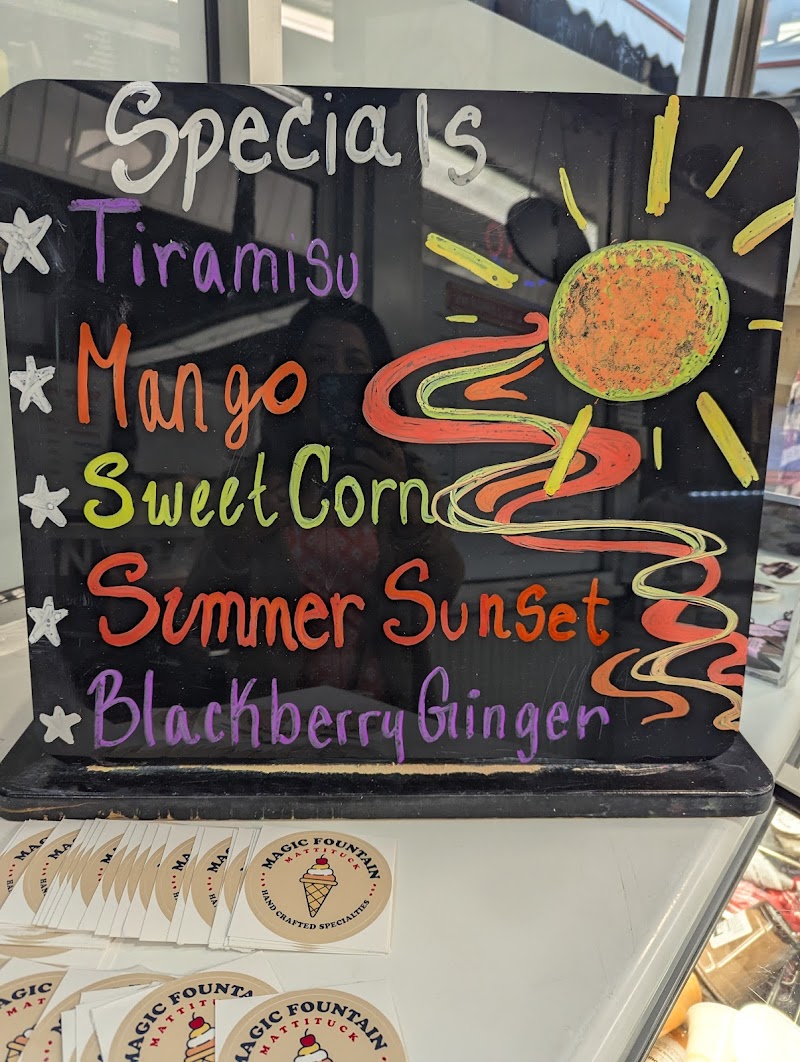 Specials
Tiramisu
Mango
Sweet Corn
Summer Sunset
Blackberry Ginger
MAGIC FOUNTAIN
MATTITUCK
HAND CRAFTED SPECIALTIES
MAGIC FOUNTAIN
MATTITUCK
MAGIC FOUNTAIN
MATTITUCK